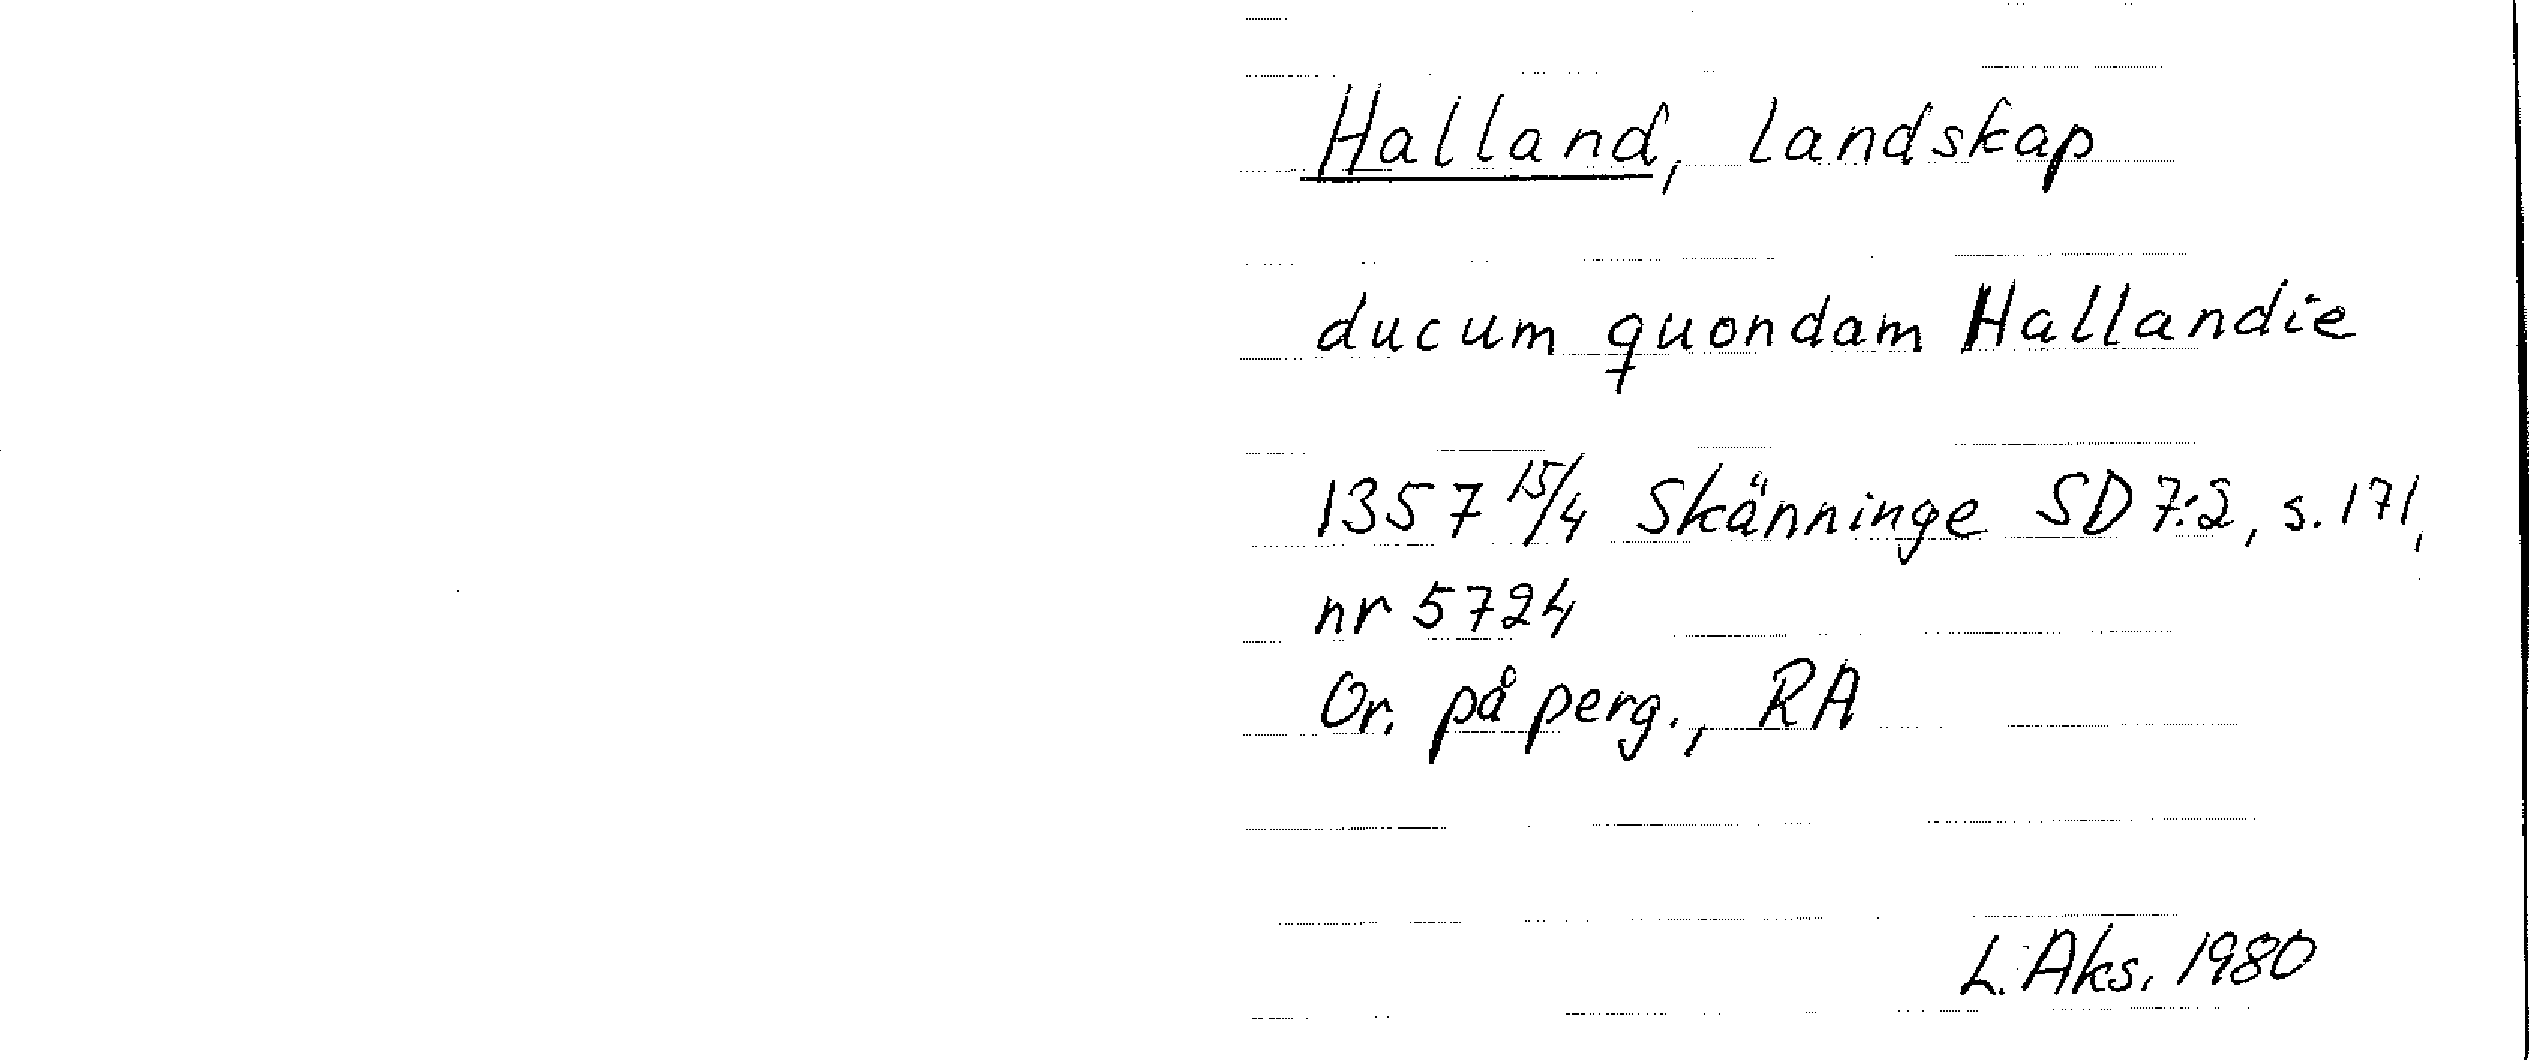 Halland, landskap
ducum quondam Hallandie
1357 15/4 Skänninge SD 7:2, s. 171,
nr 5724
Or. på perg., RA
L. Aks. 1980